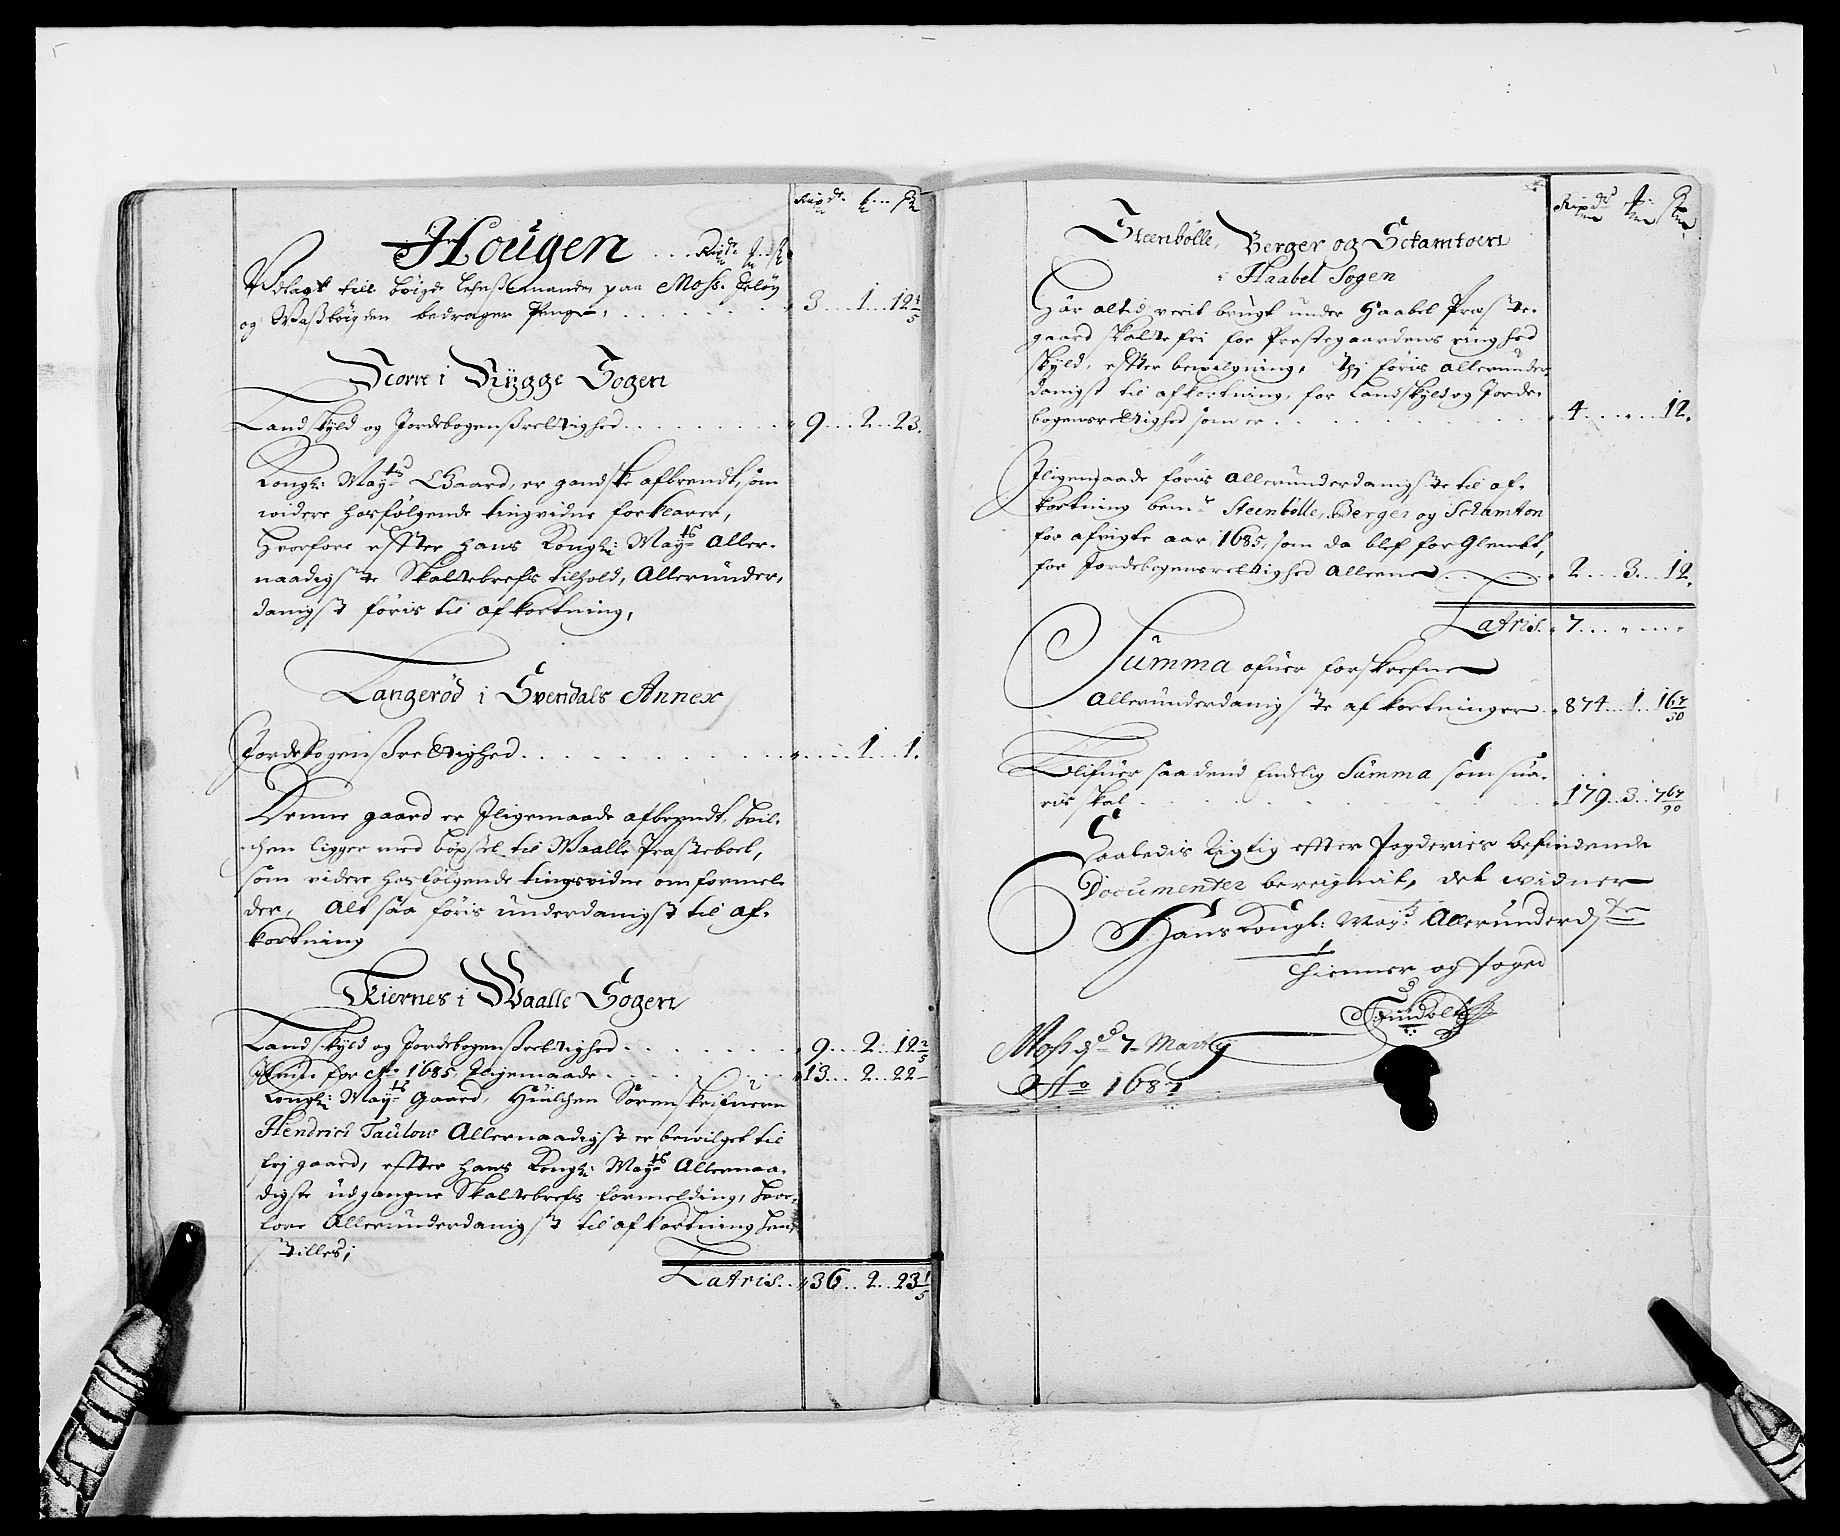 Rixdr. ... ß
Hougen ... Rixdr
Udlagt till böigde Lensmanden paa Moss. Jelöy
og Wasböigden bedrager Penge, . . . . . 3 . . 1 . . 12 4/5
Scorre i Rÿgge Sogen
Landskyld og Jordebogensrettighed . . . . . 9 . . 2 . . 23.
Kongl: Mayts Gaard, er gandske afbrendt, som
widere hosfølgende tingvidne forklarer,
Hvorfore effter hans Kongl: Mayts Aller-
naadigste Skattebrefs tilhold, Allerunder,
danigst føris til afkortning,
Langerød i Svendals Annex
Jordebogensrettighed . . . . . . 1 . . 1.
Denne gaard er Iligemaade afbrendt, huil-
chen ligger med böxsel til Waalle Præsteboel,
som videre hosfølgende tingsvidne omformel-
der, Alt saa føris underdanigst til af-
kortning
Kiernes i Waalle Sogen
Landskyld og Jordebogensrettighed . . . . 9 . . 2 . . 12 2/5
for Ao 1685 Iligemaade . . . . 13 . . 2 . . 22
Kongl: Mayts Gaard, Huilchen Sorenskrifueren
Hendrich Taulow Allernaadigst er bewilget til
sej gaard, effter hans Kongl: Mayts Allernaa-
digste udgangne Skattebrefs formelding, huor-
fore Allerunderdanigst til afkortning hen
stilles;
Latris . . 36 . . 2 . . 23 1/5
Rixdr
Steenbölle, Berger og Schamtoen
i Haabel Sogen
Har altid verit brugt under Haabel Præste-
gaard skattefri for Prestegaardens ringhed
skyld, effter bewilgning, føris allerunder-
danigst til afkortning, for Landskyld og Jorde-
bogensrettighed som er . . . . 4 . . . . 12.
Iligemaade føris allerunderdanigste til af-
kortning bemte Steenbölle, Berger og Schamton
for afvigte aar 1685, som da blef forglemt,
for Jordebogensrettighed alleene . . . 2 . . 3 . . 12.
Latris. 7 . . . .
Summa ofuer forskrefne
Allerunderdanigste afkortninger . 874 . . 1 . . 16 67/90
Blifuer saa dend Endelig Summa som sua-
ris skal . . . . 179 . . 3 . . 7 67/90
Saaledis Rigtig effter Fogderies befindende
Documenter beregnit, det widner
Hans Kongl: Mayts Allerunderdste
Thienner og foged
Moss d 7 Marty
Ao 1687